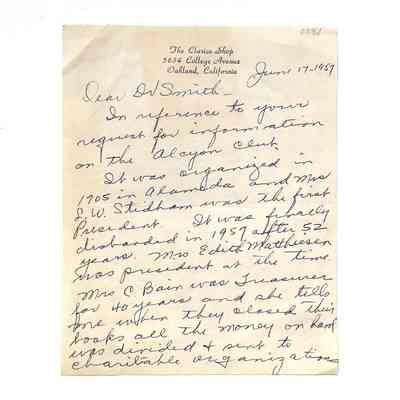 The Clarice Shop
5654 College Avenue
Oakland, California
June 17, 1957
Dear Dr Smith -
In reference to your
request for information
on the Alcyon Club.
It was organized in
1905 in Alameda and Mrs
S. W. Stidham was the first
President. It was finally
disbanded in 1957 after 52
years. Mrs Edith Matthiesen
was president at the time
Mrs C Bain was Treasurer
for 40 years and she tells
me when they closed their
books all the money on hand
was divided & sent to
charitable organizations